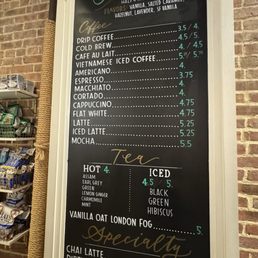 FLAVORS: VANILLA, SALTED CARAMEL,
HAZELNUT, LAVENDER, SF VANILLA
Coffee
DRIP COFFEE 3.5/4
COLD BREW 4/4.5
CAFE AU LAIT 4/4.5
VIETNAMESE ICED COFFEE
AMERICANO
ESPRESSO 3.75
MACCHIATO 4
CORTADO 4
CAPPUCCINO 4.75
FLAT WHITE 4.75
LATTE 5
ICED LATTE 5.25
MOCHA 5.5
Tea
HOT 4 ICED
4.5 5
ASSAM
EARL GREY
GREEN
LEMON GINGER
CHAMOMILE
MINT
BLACK
GREEN
HIBISCUS
VANILLA OAT LONDON FOG 5
Specialty
CHAI LATTE